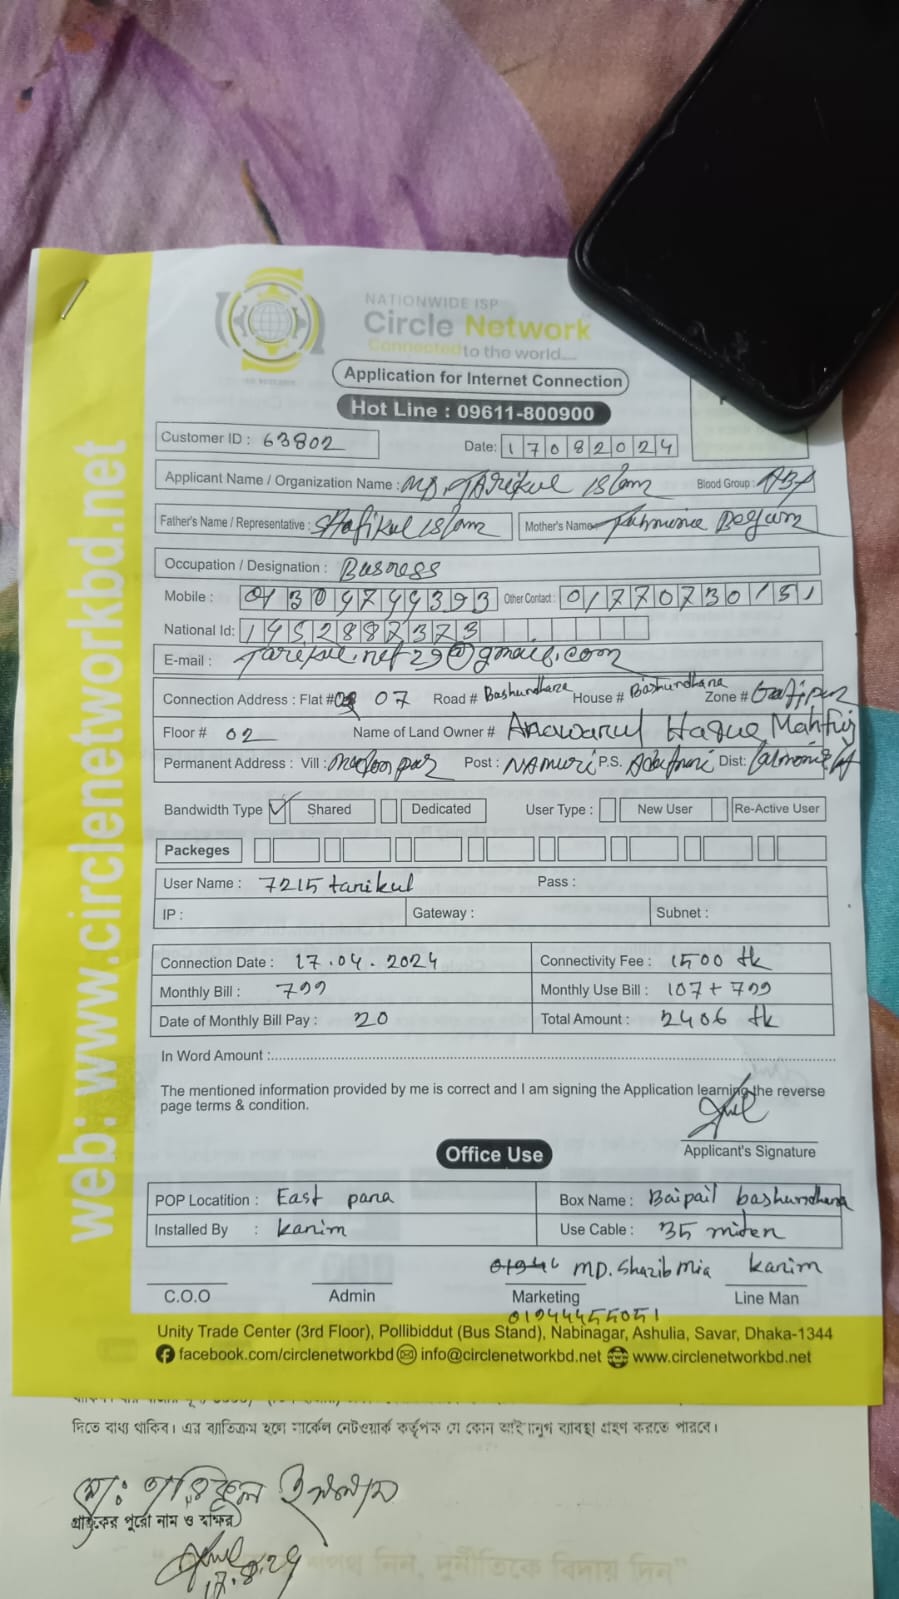 web: www.circlenetworkbd.net
NATIONWIDE ISP
Circle Network
Connected to the world....
Application for Internet Connection
Hot Line : 09611-800900
Customer ID : 63802
Date: 17082024
Applicant Name / Organization Name : MD. TARikul ISlam Blood Group :
Father's Name / Representative : Shafikul ISlam Mother's Name Begum
Occupation / Designation : Busness
Mobile : Other Contact : 01770730151
National Id: 1452887373
E-mail :
Connection Address : Flat # 07 Road # Bashundhara House # Bashundhara Zone # Gazipur
Floor # 02 Name of Land Owner # Anowarul Haque Mahfuj
Permanent Address : Vill : Post : NAMURi P.S. Dist:
Bandwidth Type Shared Dedicated User Type : New User Re-Active User
Packeges
User Name : 7215tarikul Pass :
IP : Gateway : Subnet :
Connection Date : 17.04.2024 Connectivity Fee : 1500 tk
Monthly Bill : 799 Monthly Use Bill : 107 + 799
Date of Monthly Bill Pay : 20 Total Amount : 2406 tk
In Word Amount :
The mentioned information provided by me is correct and I am signing the Application learning the reverse
page terms & condition.
Applicant's Signature
Office Use
POP Locatition : East para Box Name : Baipail bashundhara
Installed By : karim Use Cable : 35 miter
MD. Shazib Mia karim
C.O.O Admin Marketing Line Man
01944455051
Unity Trade Center (3rd Floor), Pollibiddut (Bus Stand), Nabinagar, Ashulia, Savar, Dhaka-1344
facebook.com/circlenetworkbd info@circlenetworkbd.net www.circlenetworkbd.net
দিতে বাধ্য থাকিব। এর ব্যতিক্রম হলে সার্কেল নেটওয়ার্ক কর্তৃপক্ষ যে কোন আইনানুগ ব্যবস্থা গ্রহণ করতে পারবে।
মো: তারিকুল ইসলাম
গ্রাহকের পুরো নাম ও স্বাক্ষর
17.8.24